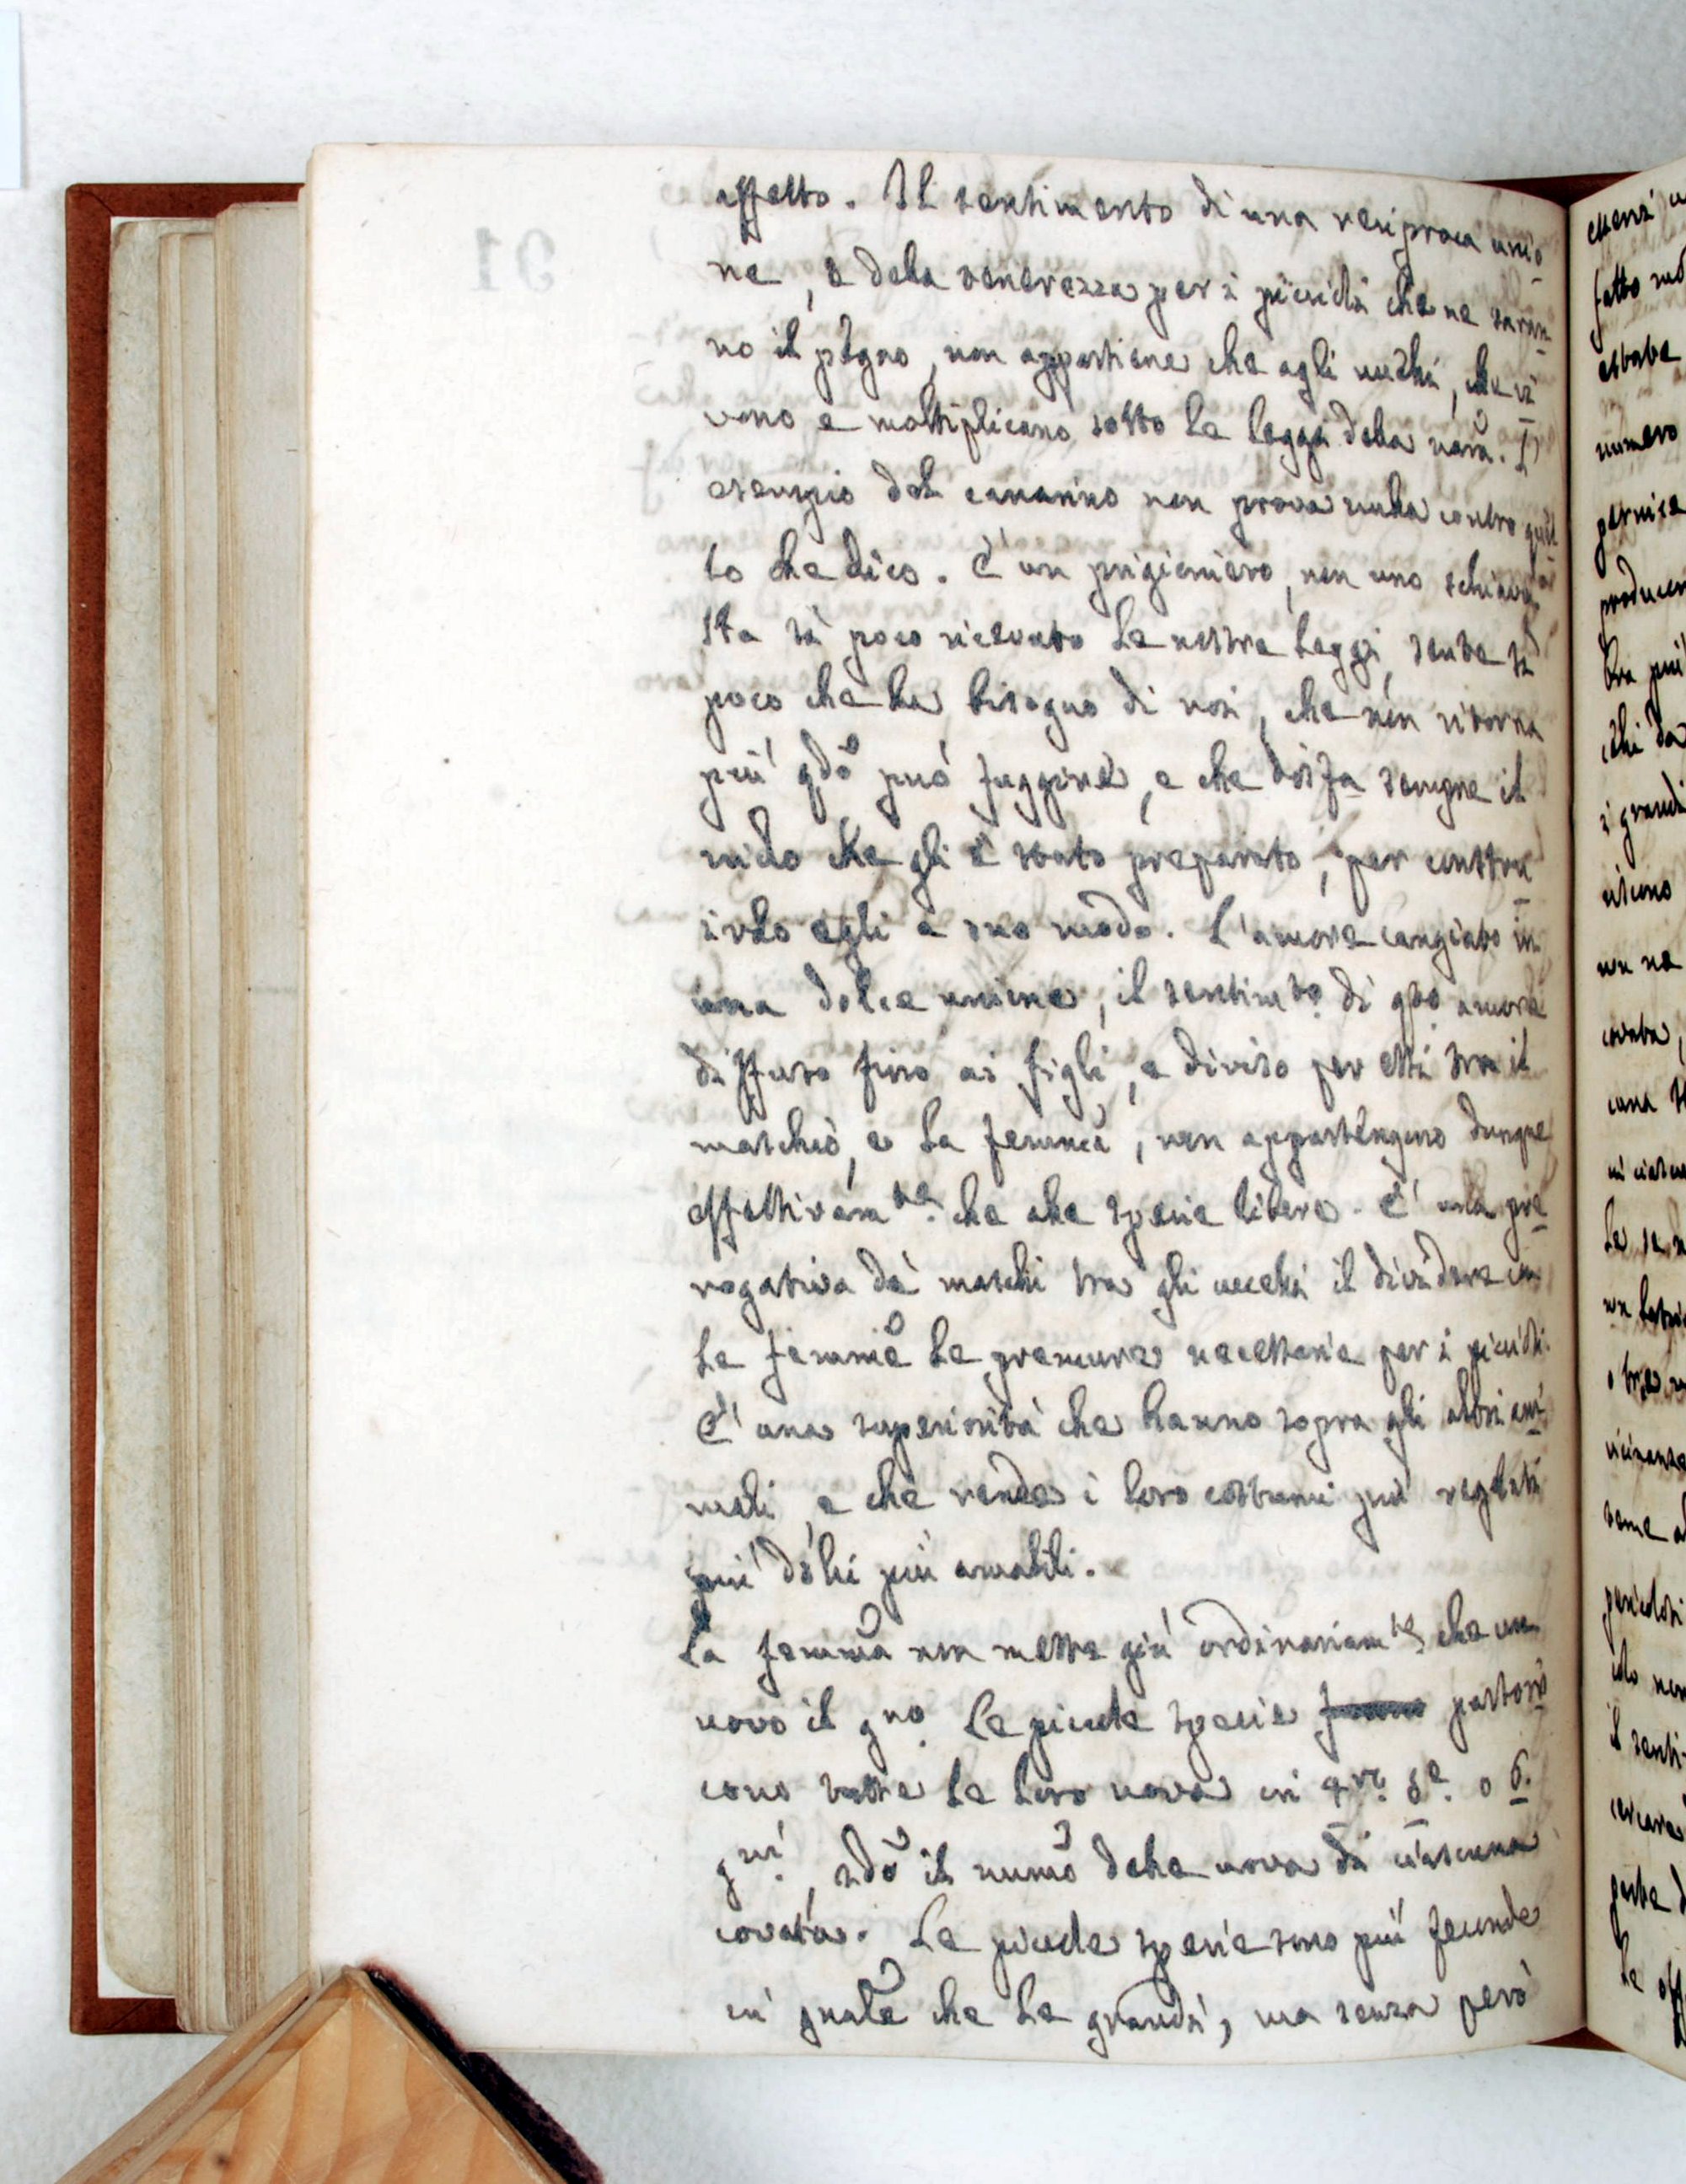 affetto. Il sentimento di una reciproca unio-
ne, e della tenerezza per i piccioli che ne saran-
no il pegno, non appartiene che agli uccelli, che vi-
vono e moltiplicano sotto le leggi della narã. L'
esempio del cannarino non prova nulla contro quã-
to che dico. È un prigioniero, non uno schiavo.
Ha sì poco ricevuto le nostre leggi, sente sì
poco che ha bisogno di noi, che non ritorna
più qdõ può fuggire, e che disfa sempre il
nido che gli è stato preparato, per costru-
irlo egli a suo modo. L'amore cangiato in
una dolce unione, il sentimto. di qto. amore
diffuso fino ai figli, e diviso per essi tra il
maschio, e la femmã, non appartengono dunque
effettivamte. che alle specie libere. È una pre-
rogativa de' maschi tra gli uccelli il dividere con
le femmẽ le premure necessarie per i piccioli.
È una superiorità che hanno sopra gli altri ani-
mali, e che rende i loro costumi più regolati
più dolci più amabili.
La femmã non mette giù ordinariamte. che un
uovo il gno. Le picciole specie partori-
cono tutte le loro uova in 4ro. 5e. o 6.
gni., sdõ il numõ delle uova di ciascuna
covata. Le picciole specie sono più feconde
in gnalẽ che le grandi, ma senza però
91